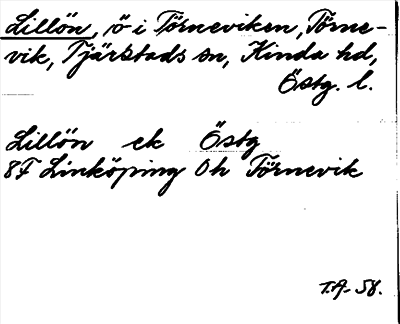 Lillön, ö i Törneviken, Törne-
vik, Tjärstads sn, Kinda hd,
Östg. l.
Lillön ek Östg
8F Linköping Oh Törnevik
T.A. 58.